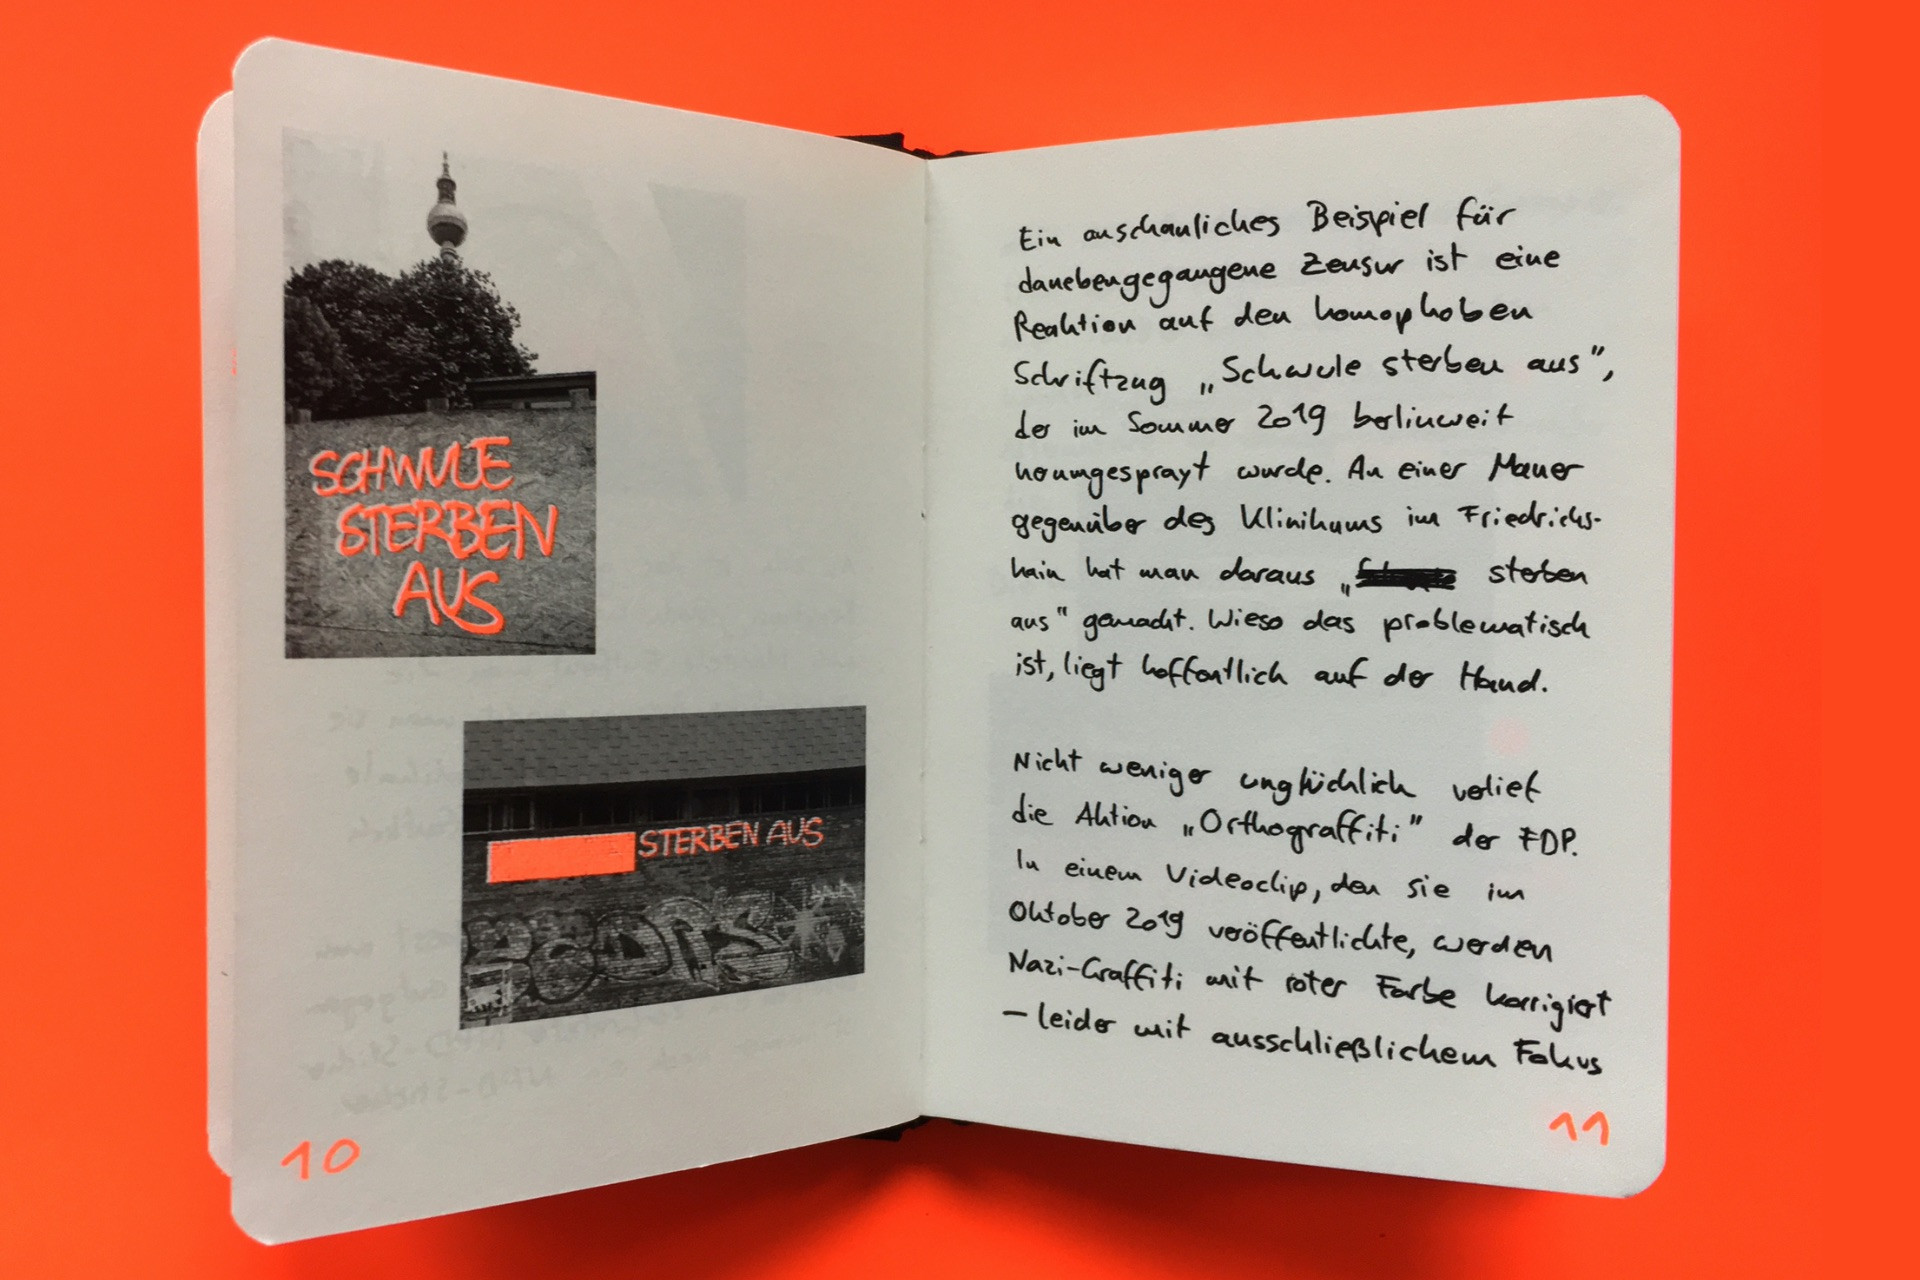 SCHWULE
STERBEN
AUS
STERBEN AUS
10
Ein anschauliches Beispiel für
danebengegangene Zensur ist eine
Reaktion auf den homophoben
Schriftzug „Schwule sterben aus”,
der im Sommer 2019 berlinweit
herumgesprayt wurde. An einer Mauer
gegenüber des Klinikums im Friedrichs-
hain hat man daraus „ sterben
aus" gemacht. Wieso das problematisch
ist, liegt hoffentlich auf der Hand.
Nicht weniger unglücklich verlief
die Aktion „Orthograffiti” der FDP.
In einem Videoclip, den sie im
Oktober 2019 veröffentlichte, werden
Nazi-Graffiti mit roter Farbe korrigiert
– leider mit ausschließlichem Fokus
11